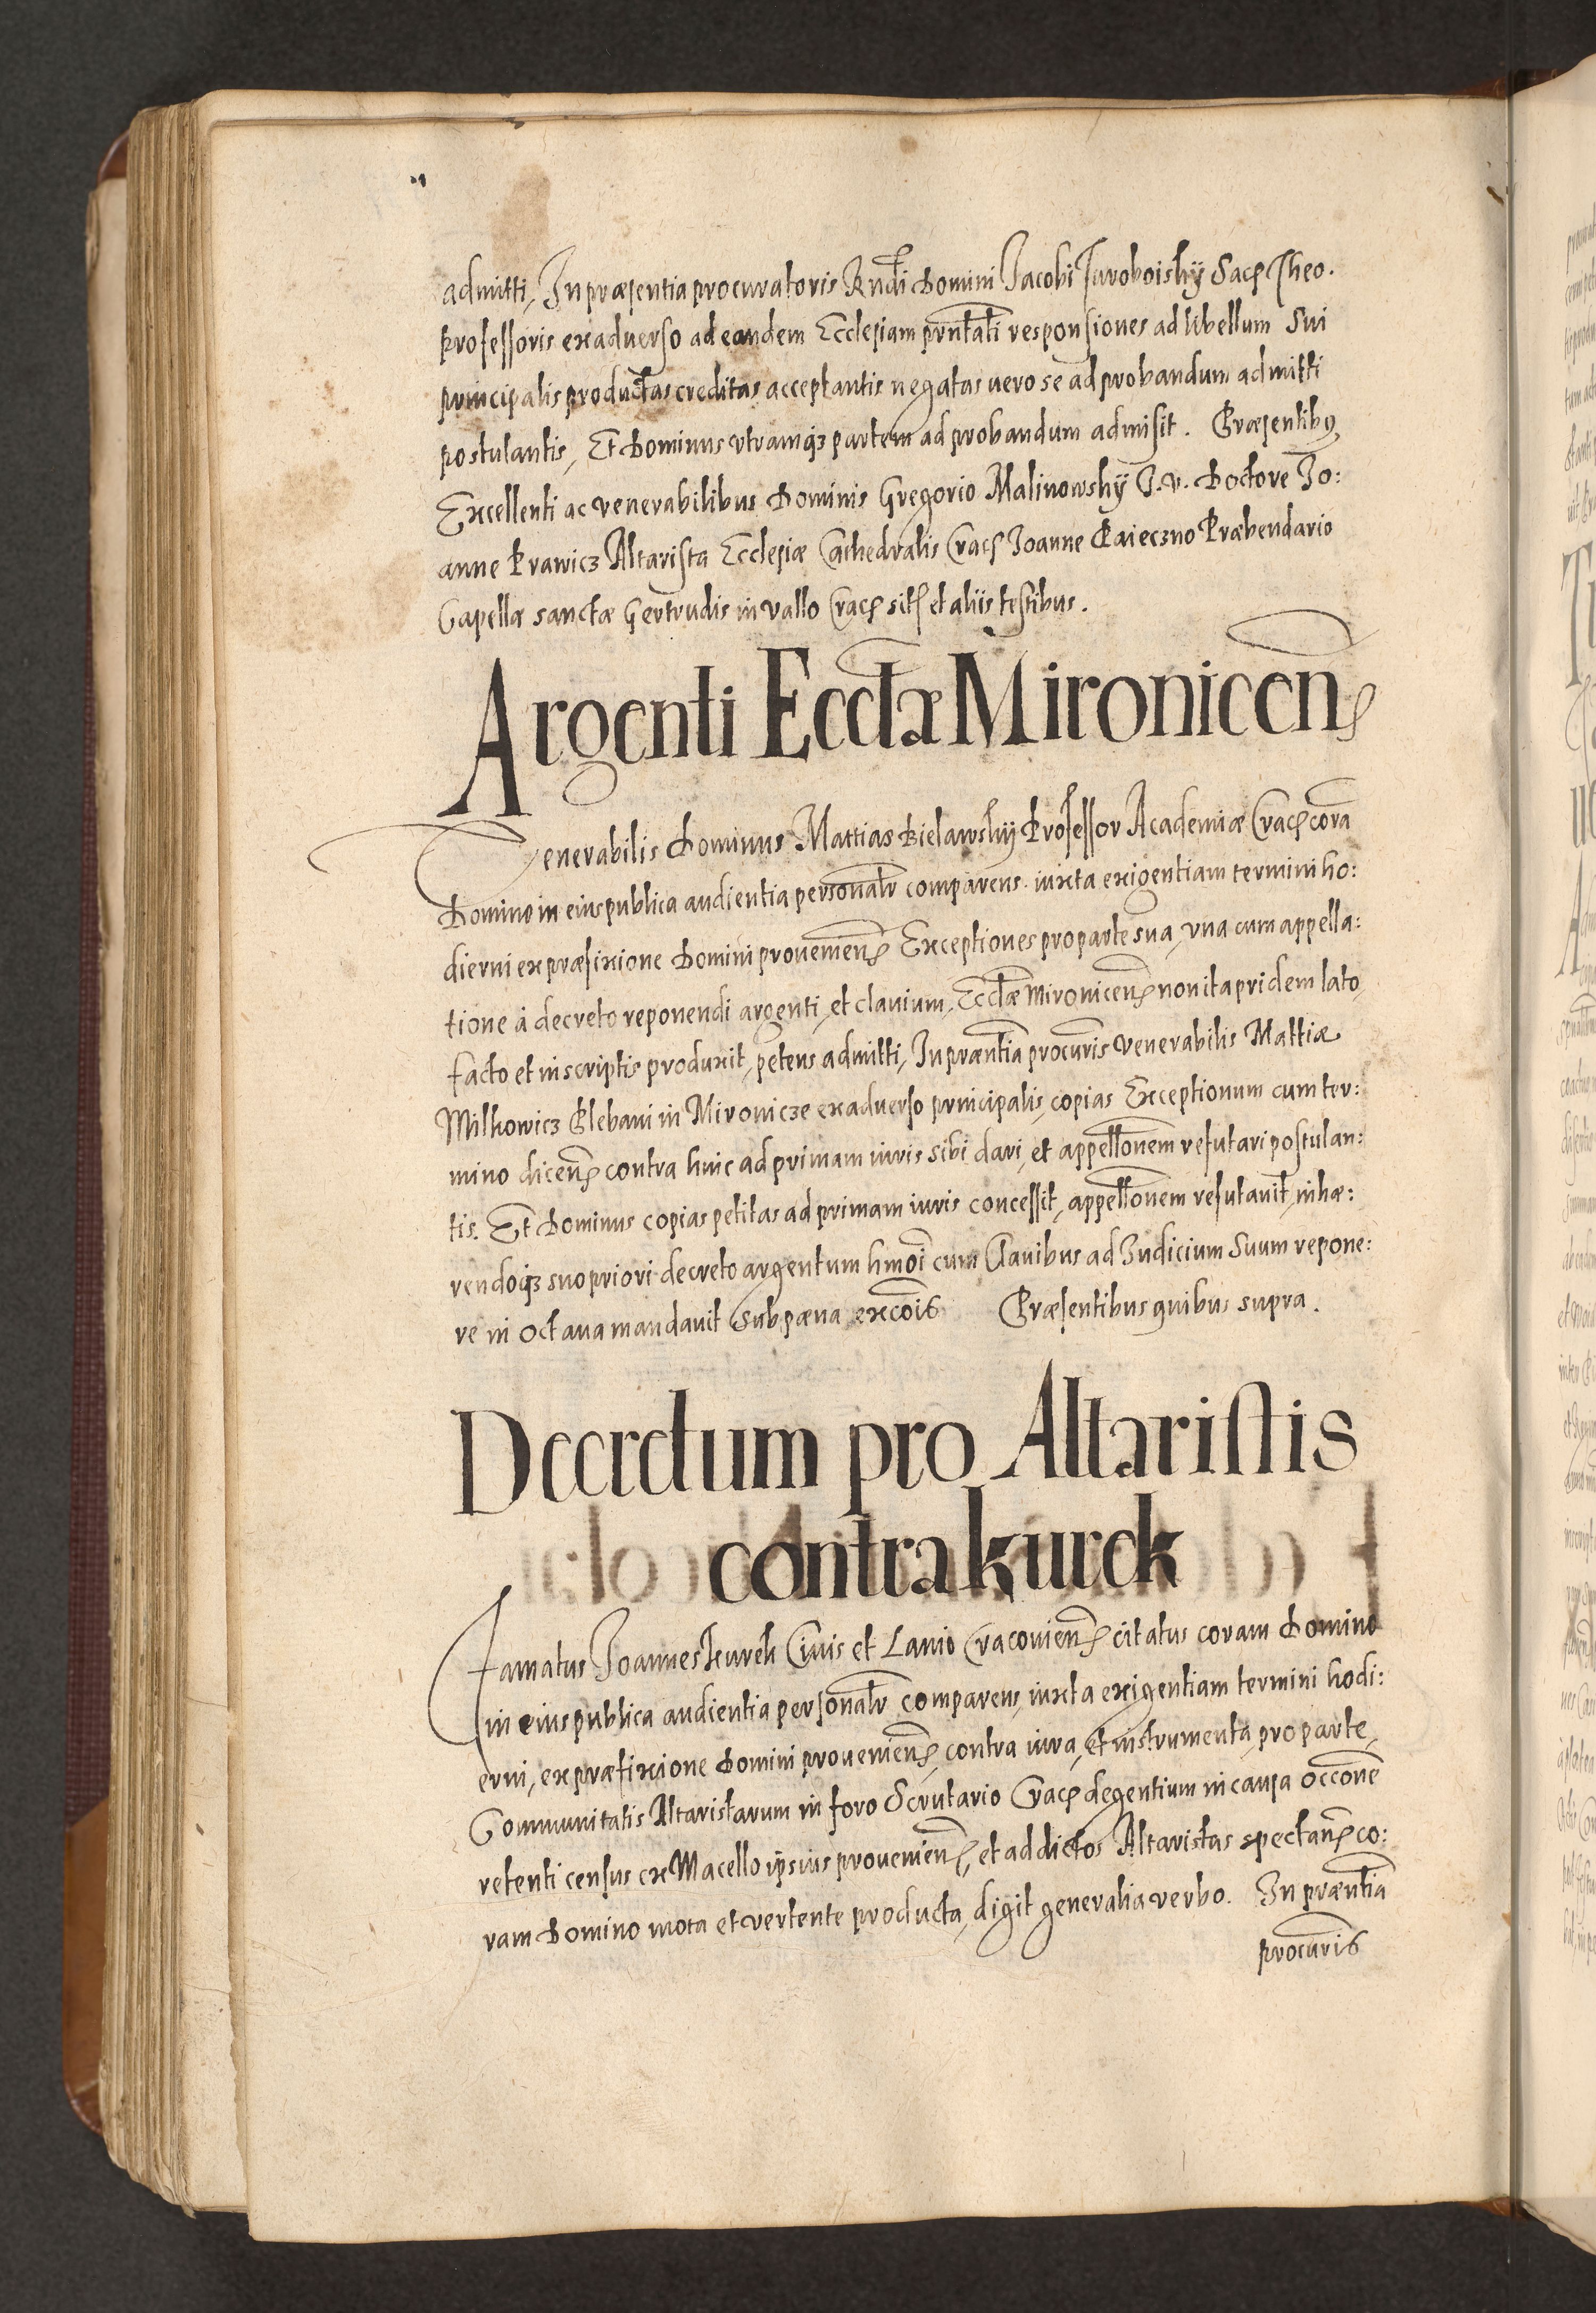 admitti, In præsentia procuratoris Rndi Domini Jacobi Juroboisky Sacꝭ Theo.
professoris exaduerso ad eandem Ecclesiam prntati responsiones ad libellum Sui
principalis productas creditas acceptantis negatas uero se ad probandum admitti
postulantis, Et Dominus vtramqꝫ partem ad probandum admisit. Præsentibꝰ
Excellenti ac venerabilibus Dominis Gregorio Malinowskÿ J. v. Doctore Jo:
anne Prawicz Altarista Ecclesiæ Cathedralis Cracꝭ Joanne Paieczno Præbendario
Capellæ sanctæ Gertrudis in vallo Cracꝭ sitꝭ et aliis testibus.
Argenti Ecclæ Mironicenꝭ
Venerabilis Dominus Mattias Bielawskÿ Professor Academiæ Cracꝭ corā
Domino in eius publica audientia personalr comparens iuxta exigentiam termini ho:
dierni ex præfixione Domini prouenienꝭ Exceptiones pro parte sua, vna cum appella:
tione à decreto reponendi argenti, et clauium, Ecclæ Mironicenꝭ non ita pridem lato,
facto et in scriptis produxit, petens admitti, In præntia procuris Venerabilis Mattiæ
Milkowicz Plebani in Mironicze exaduerso principalis, copias Exceptionum cum ter:
mino dicenꝭ contra huic ad primam iuris sibi dari, et appellonem refutari postulan:
tis. Et Dominus copias petitas ad primam iuris concessit, appellonem refutauit, inhæ:
rendoqꝫ suo priori decreto argentum hmoi cum Clauibus ad Judicium Suum repone:
re in octaua mandauit Sub pæna excois Præsentibus quibus supra.
Decretum pro Altaristis
contra kurek
Famatus Joannes Kurek Ciuis et Lanio Cracouienꝭ citatus coram Domino
in eius publica audientia personalr comparens, iuxta exigentiam termini hodi:
erni, ex præfixione Domini prouenienꝭ, contra iura, et instrumenta, pro parte,
Communitatis Altaristarum in foro Scrutario Cracꝭ degentium in causa occone
retenti census ex Macello ipsius prouenienꝭ, et ad dictos Altaristas spectanꝭ co:
ram Domino mota et vertente producta, digit generalia verbo. In præntia
procuris